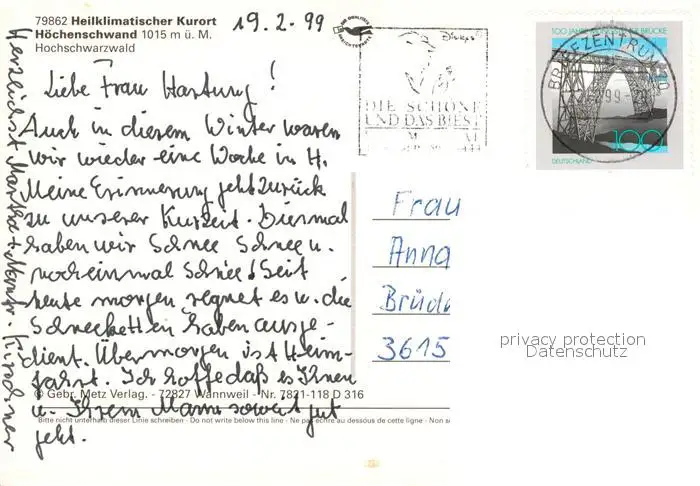 79862 Heilklimatischer Kurort
Höchenschwand 1015 m ü. M.
Hochschwarzwald
19.2.99
Liebe Frau Hartung!
Auch in diesem Winter waren
wir wieder eine Woche in H.
Meine Erinnerung geht zurück
zu unserer Kurzeit. Diesmal
haben wir Schnee Schnee u.
nocheinmal Schnee! Seit
heute morgen regnet es u. die
Schneeketten haben ausge-
dient. Übermorgen ist Heim-
fahrt. Ich hoffe daß es Ihnen
u. Ihrem Mann soweit gut
geht.
Herzlichst Martha + Kirchner
© Gebr. Metz Verlag. - 72827 Wannweil - Nr. 7821-118 D 316
Bitte nicht unterhalb dieser Linie schreiben - Do not write below this line - Ne pas écrire au dessous de cette ligne - Non s
Disney
DIE SCHÖNE
UND DAS BIEST
100 JAHRE BRÜCKE
BRIEFZENTRUM
99
100
DEUTSCHLAND
Frau
Anna
Brück
3615
privacy protection
Datenschutz